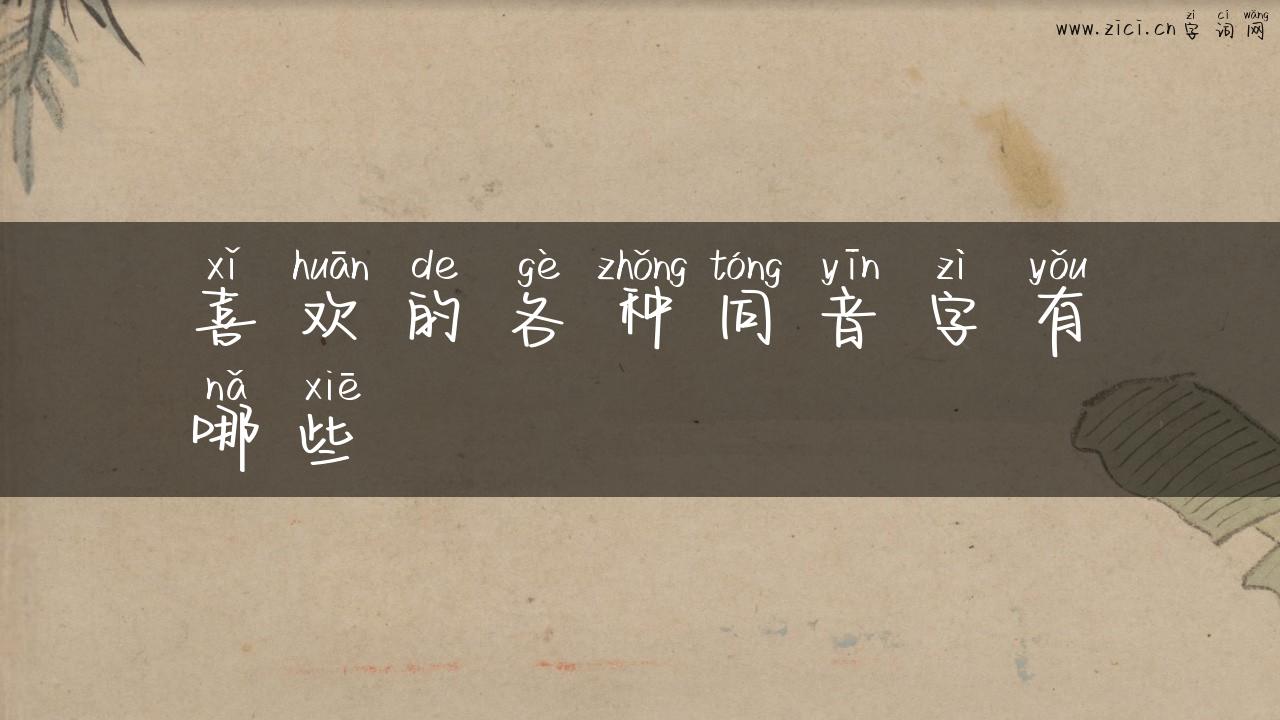 zì cí wǎng
www.zici.cn 字 词 网
xǐ huān de gè zhǒng tóng yīn zì yǒu
喜 欢 的 各 种 同 音 字 有
nǎ xiē
哪 些